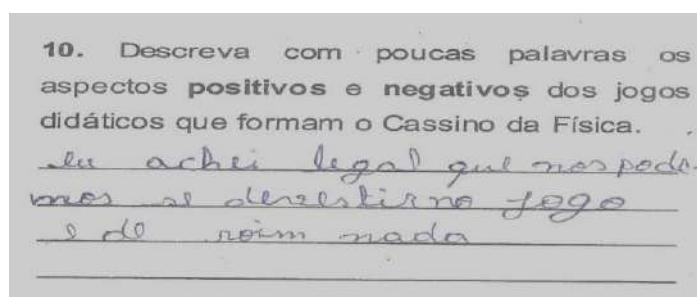 10. Descreva com poucas palavras os
aspectos positivos e negativos dos jogos
didáticos que formam o Cassino da Física.
eu achei legal que nos pode-
mos se devestir no jogo
e de roim nada